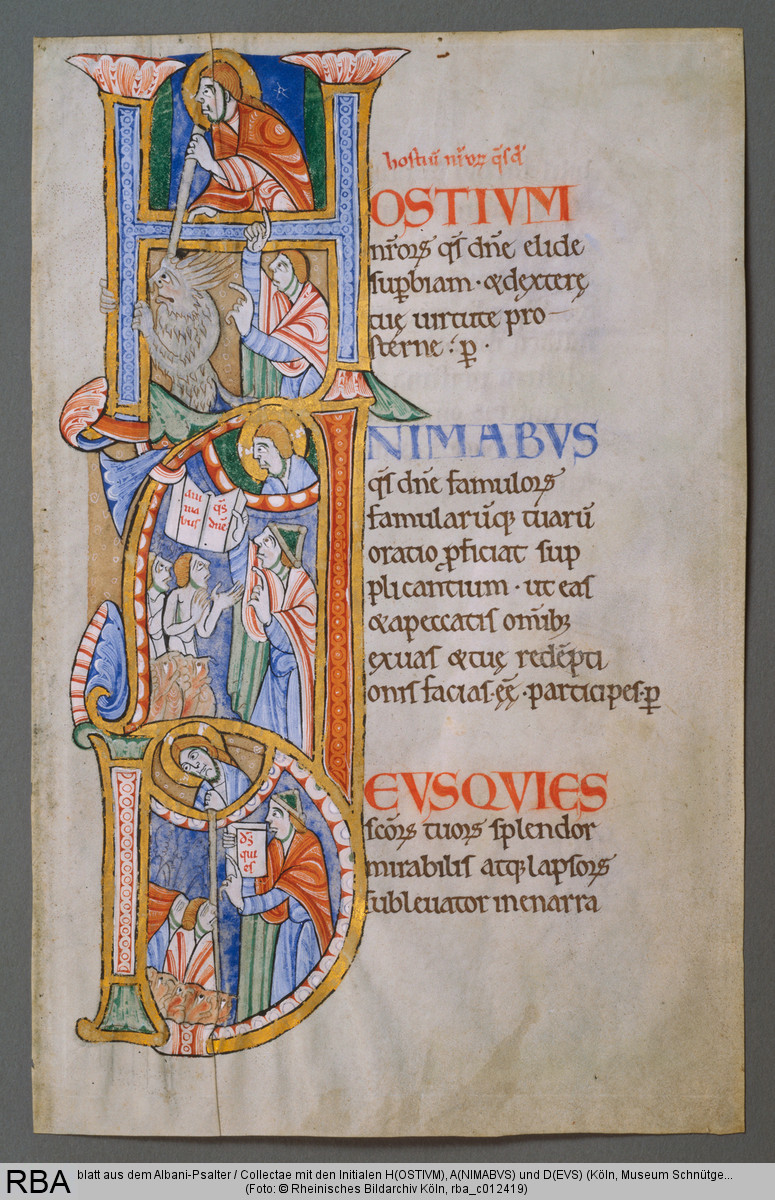 hostiū nr̄oꝝ q̄s d̄
HOSTIVM
nr̄oꝝ q̄s dn̄e elide
suꝑbiam · & dexterę
tuę uirtute pro
sterne · ꝑ ·
ANIMABVS
q̄s dn̄e famuloꝝ
famularūq; tuarū
oratio ꝓficiat sup
plicantium · ut eas
& a peccatis om̄ib;
exuas & tuę redēpti
onis facias ēē · participes · ꝑ
ani q̄s
ma dn̄e
bus
DEVS QVIES
sc̄oꝝ tuoꝝ splendor
mirabilis atq; lapsoꝝ
subleuator inenarra
d̄s
qui
es
RBA
blatt aus dem Albani-Psalter / Collectae mit den Initialen H(OSTIVM), A(NIMABVS) und D(EVS) (Köln, Museum Schnütge...
(Foto: © Rheinisches Bildarchiv Köln, rba_c012419)